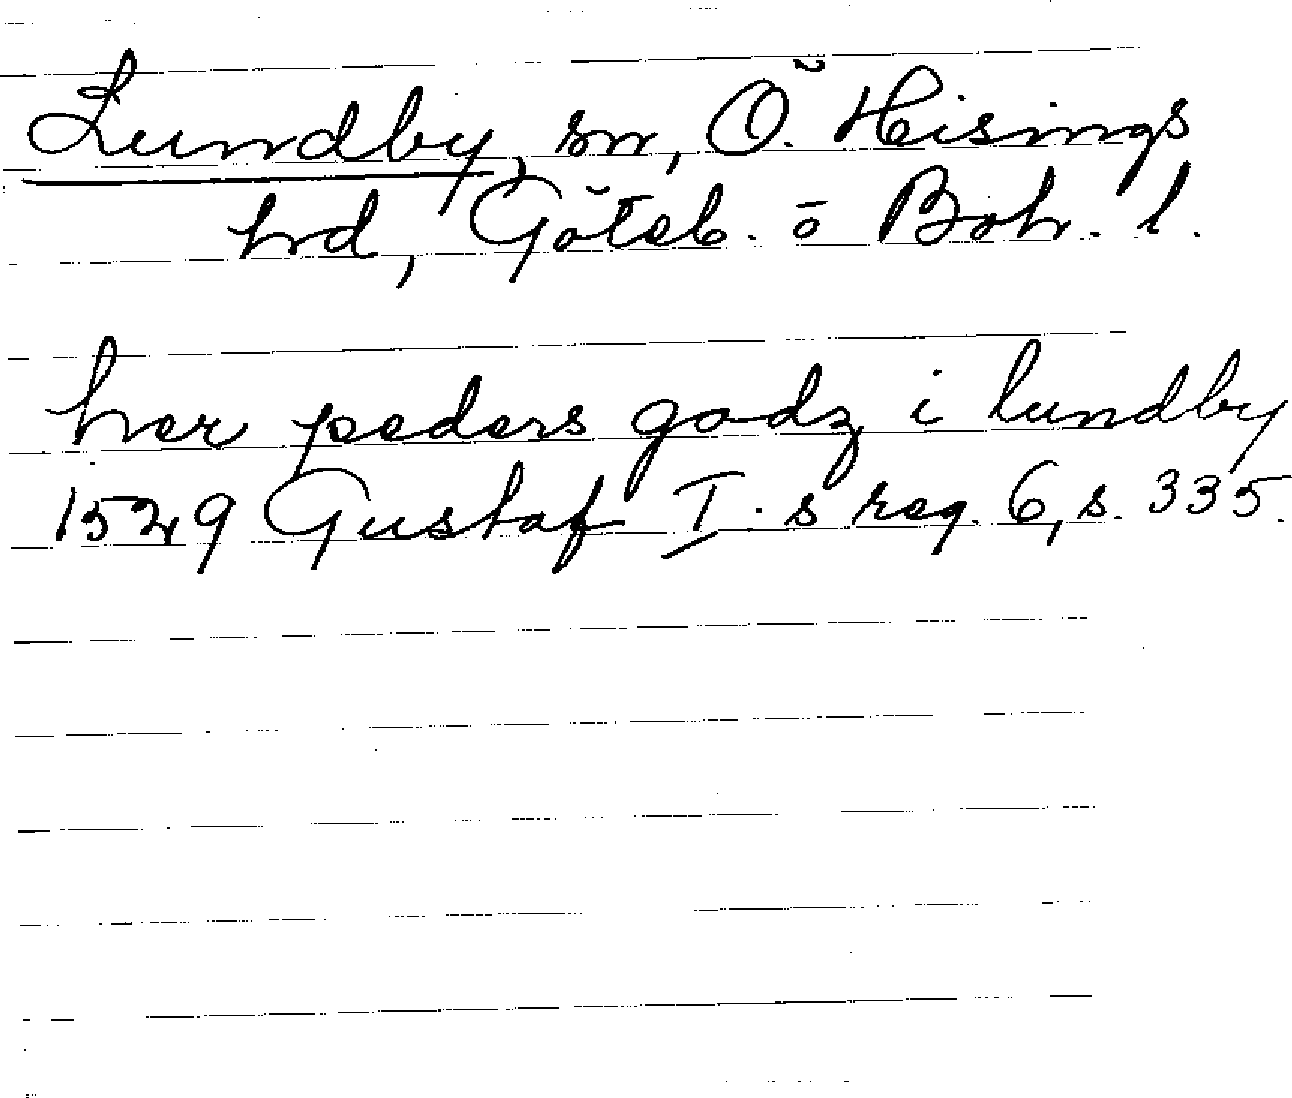 Lundby, sn, Ö. Hisings
hrd, Göteb. o Boh. l.
her peders godz i lundby
1529 Gustaf I. s reg. 6, s. 335.